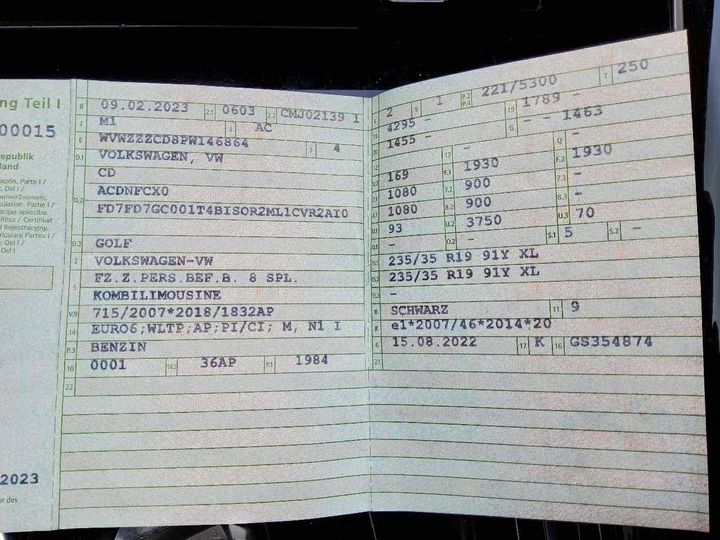 ng Teil I
00015
epublik
land
2023
B 09.02.2023 2.1 0603 2.2 CMJ02139 1
J M1 4 AC
E WVWZZZCD8PW146864 3 4
D.1 VOLKSWAGEN, VW
CD
D.2 ACDNFCX0
FD7FD7GC001T4BISOR2ML1CVR2AI0
D.3 GOLF
2 VOLKSWAGEN-VW
5 FZ.Z.PERS.BEF.B. 8 SPL.
KOMBILIMOUSINE
V.9 715/2007*2018/1832AP
14 EURO6;WLTP;AP;PI/CI; M, N1 I
P.3 BENZIN
10 0001 14.1 36AP P.1 1984
22
L 2 9 1 P.2 P.4 221/5300 T 250
18 4295 - 19 1789 -
20 1455 - G - 1463
12 - Q -
169 F.1 1930 F.2 1930
1080 7.2 900 -
1080 8.2 900 -
U.1 93 U.2 3750 U.3 70
- O.2 - S.1 5 S.2 -
235/35 R19 91Y XL
235/35 R19 91Y XL
-
R SCHWARZ 11 9
K e1*2007/46*2014*20
6 15.08.2022 17 K 16 GS354874
21